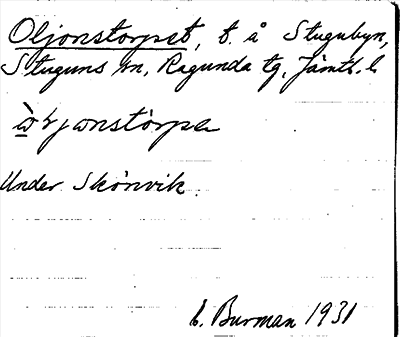 Oljonstorpet, t. å Stugubyn,
Stuguns sn, Ragunda tg, Jämtl. l
Under Skönvik.
E. Burman 1931